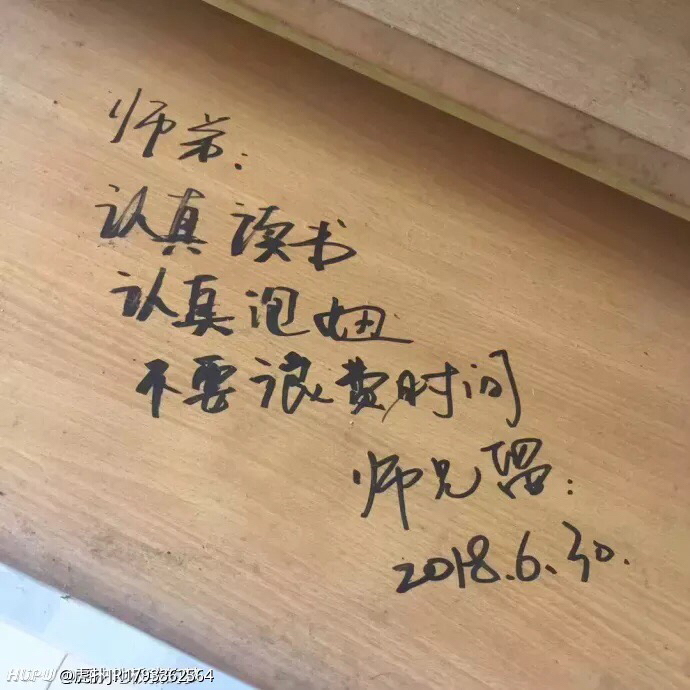 师弟:
认真读书
认真泡妞
不要浪费时间
师兄留:
2018.6.30.
HUPU @虎扑JR1793362564